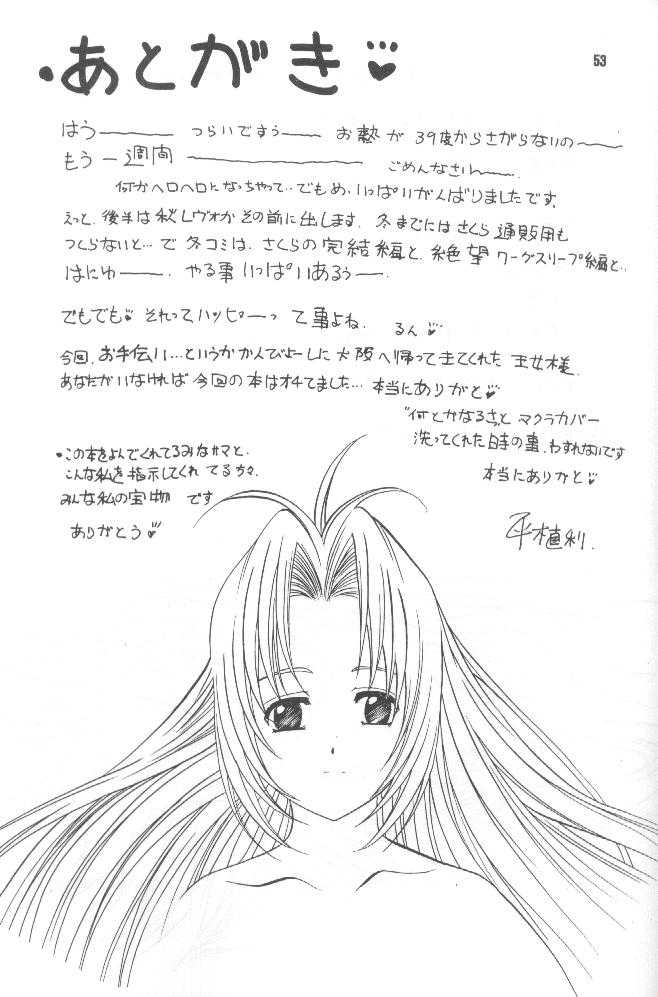 ・あとがき♡
53
はう〜 つらいですぅ〜 お熱が39度からさがらないの〜
もう一週間〜 ごめんなさい〜.
何かヘロヘロになっちゃって‥でもめいっぱいがんばりましたです.
えっと、後半は秋レヴォかその前に出します. 冬までにはさくら通販用も
つくらないと…で冬コミは、さくらの完結編と、絶望ワーグスリープ編と..
はにゅ〜. やる事いっぱいあるぅ〜.
でもでも♡ それってハッピーって事よね. るん♡
今回、お手伝い…というかかんびょーしに大阪へ帰って来てくれた王女様.
あなたがいなければ今回の本はオチてました… 本当にありがと♡
"何とかなるさ"と マクラカバー
洗ってくれた時の事、わすれないです
本当にありがと♡
・この本をよんでくれてるみなサマと、
こんな私を指示してくれてる方々、
みんな私の宝物 です
ありがとう♡
平植利.